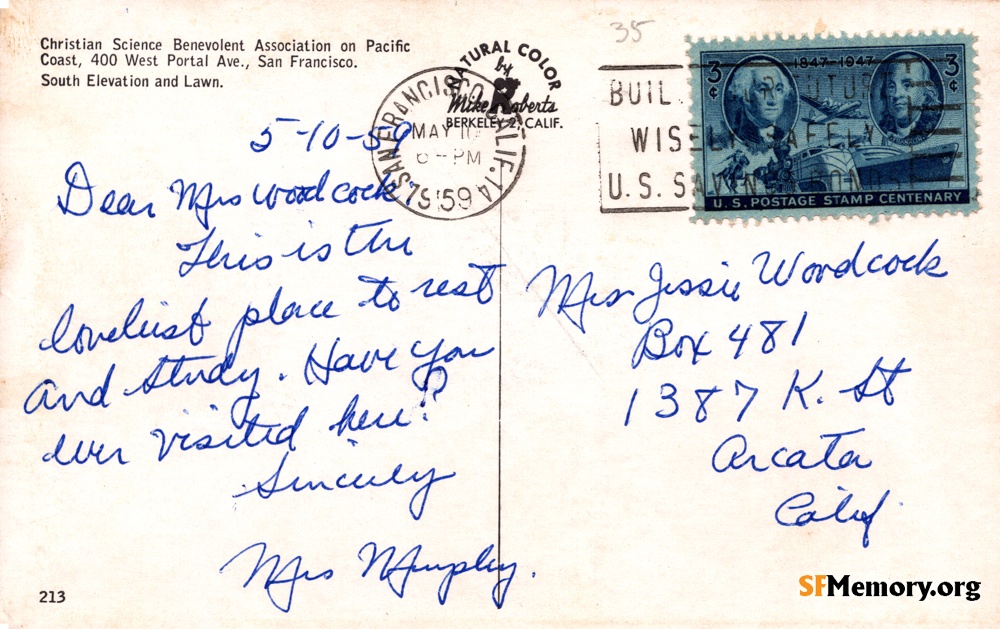 Christian Science Benevolent Association on Pacific
Coast, 400 West Portal Ave., San Francisco.
South Elevation and Lawn.
35
NATURAL COLOR
by
Mike Roberts
BERKELEY 2, CALIF.
SAN FRANCISCO, CALIF. 14
MAY 10
6 - PM
1959
BUIL UTUR
WISELY SAFELY
U.S. SAVINGS BONDS
3¢ 1847-1947 3¢
U.S. POSTAGE STAMP CENTENARY
5-10-59
Dear Mrs Woodcock,
This is the
loveliest place to rest
and study. Have you
ever visited here?
Sincerely
Mrs Murphy.
Mrs Jessie Woodcock
Box 481
1387 K. St
Arcata
Calif.
213
SFMemory.org